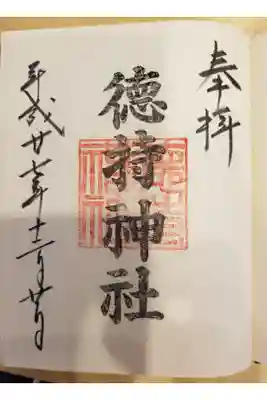 奉拝
徳持神社
平成廿七年十二月廿日